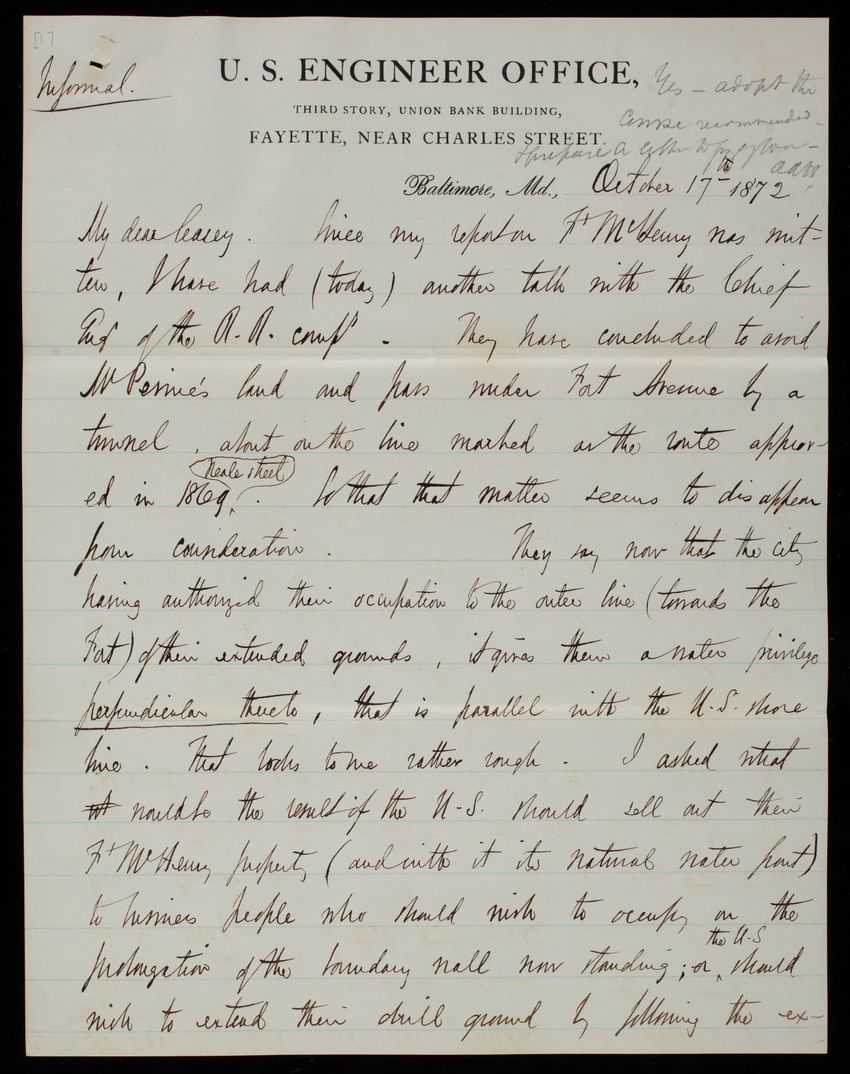 [1]
Informal.
U. S. ENGINEER OFFICE,
THIRD STORY, UNION BANK BUILDING,
FAYETTE, NEAR CHARLES STREET.
Yes – adopt the
course recommended –
& prepare a letter to
Baltimore, Md., October 17th 1872
My dear Casey. Since my report on Ft McHenry was writ-
ten, I have had (today) another talk with the Chief
Engr of the R.R. comp'y. They have concluded to avoid
Mr Perine's land and pass under Fort Avenue by a
tunnel, about on the line marked as the route approv-
ed in 1869, (Neale street). So that that matter seems to disappear
from consideration. They say now that the city
having authorized their occupation to the outer line (towards the
Fort) of their extended grounds, it gives them a water privilege
perpendicular thereto, that is parallel with the U.S. shore
line. That looks to me rather rough. I asked what
would be the result if the U.S. should sell out their
Ft McHenry property (and with it its natural water front)
to business people who should wish to occupy on the
prolongation of the boundary wall now standing; or, the U.S. should
wish to extend their drill ground by following the ex-